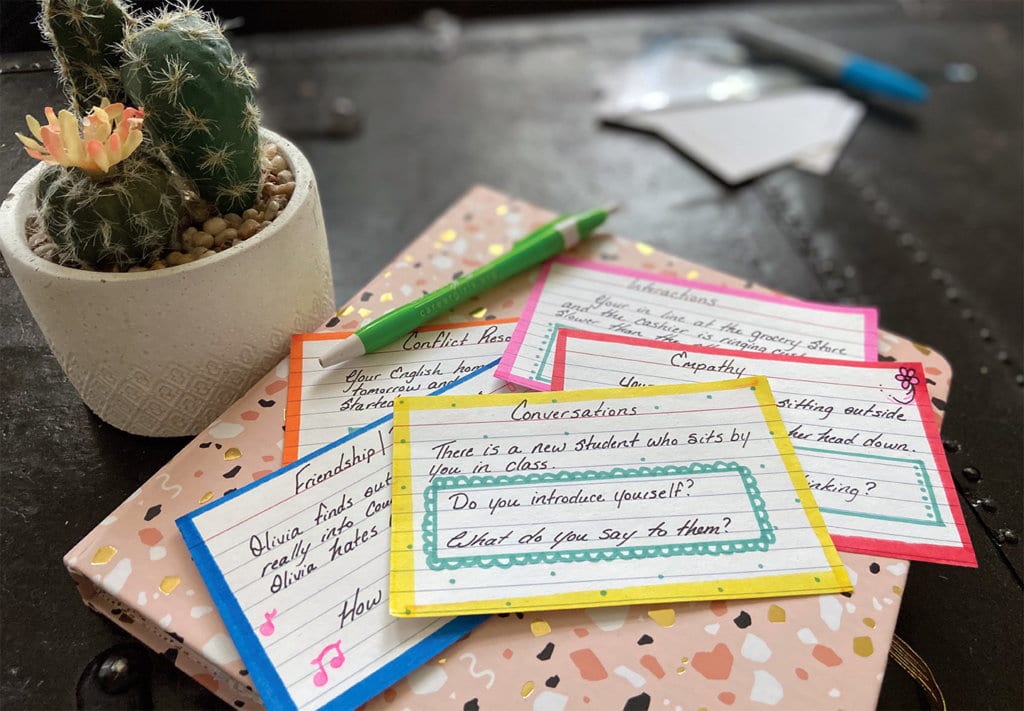 Interactions
Your in line at the grocery store
and the cashier is ringing
slower than the
Conflict Reso
Your English hom
tomorrow and
Started
Empathy
sitting outside
her head down.
inking?
Friendship
Olivia finds out
really into Cou
Olivia hates
How
Conversations
There is a new student who sits by
you in class.
Do you introduce yourself?
What do you say to them?